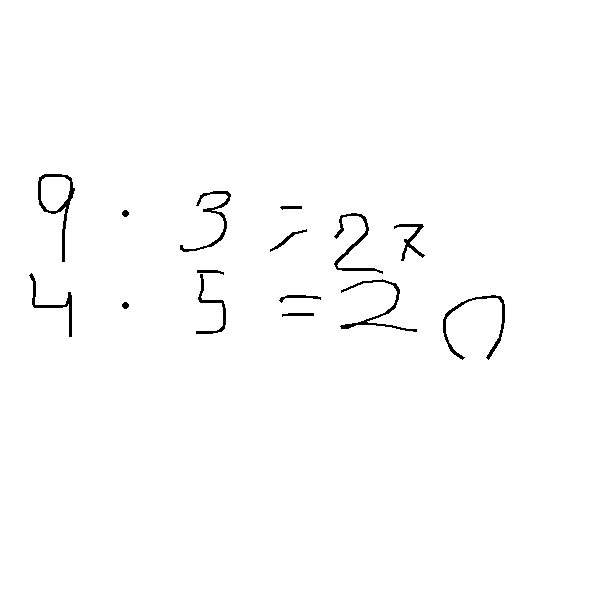 9 · 3 = 27
4 · 5 = 20